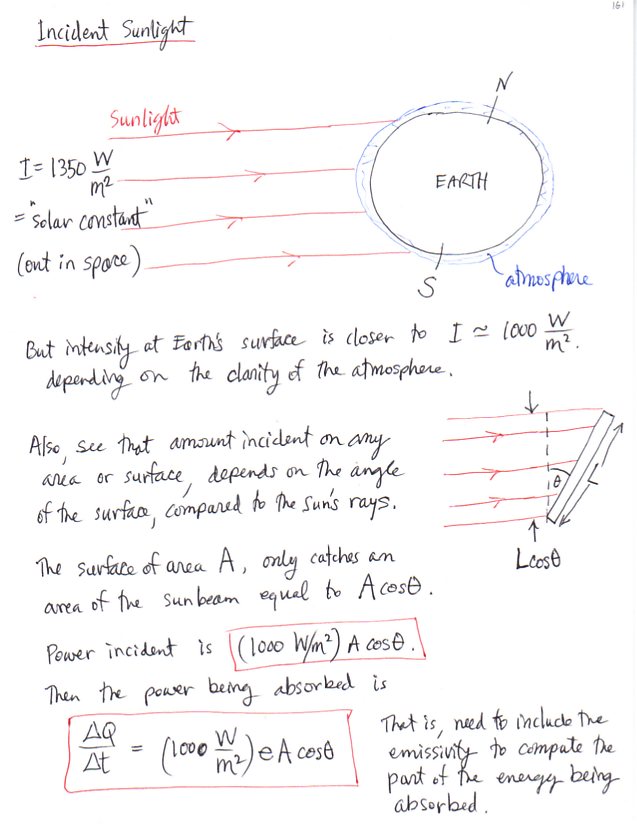 161
Incident Sunlight
N
Sunlight
I = 1350 W/m²
EARTH
= "solar constant"
(out in space)
S
atmosphere
But intensity at Earth's surface is closer to I ≃ 1000 W/m².
depending on the clarity of the atmosphere.
Also, see that amount incident on any
area or surface, depends on the angle
of the surface, compared to the sun's rays.
θ
L
L cosθ
The surface of area A, only catches an
area of the sunbeam equal to A cosθ.
Power incident is (1000 W/m²) A cosθ.
Then the power being absorbed is
ΔQ/Δt = (1000 W/m²) e A cosθ
That is, need to include the
emissivity to compute the
part of the energy being
absorbed.